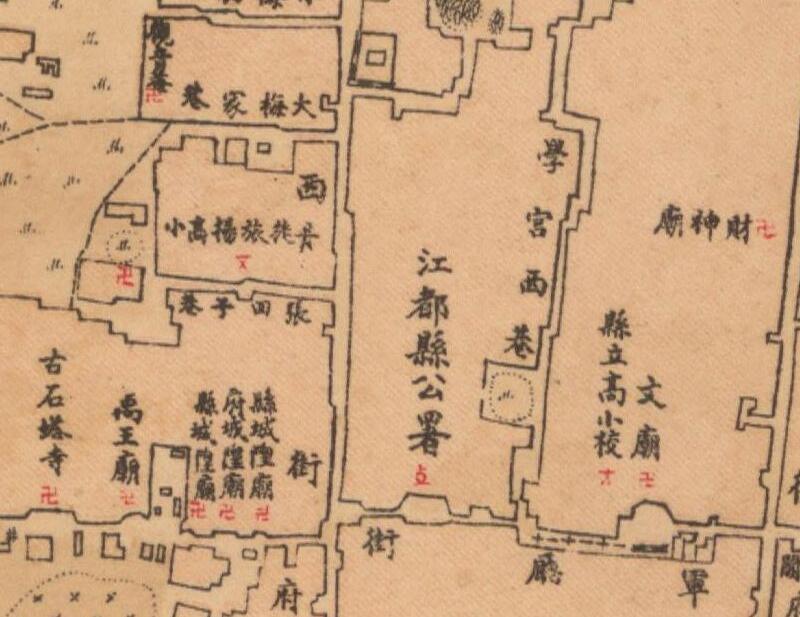 觀音菴
大梅家巷
西
旌旅揚高小
學宮西巷
財神廟
江都縣公署
張回子巷
縣立高小校
文廟
古石塔寺
禹王廟
縣城隍廟
府城隍廟
縣城隍廟
街
街
廳
軍
府